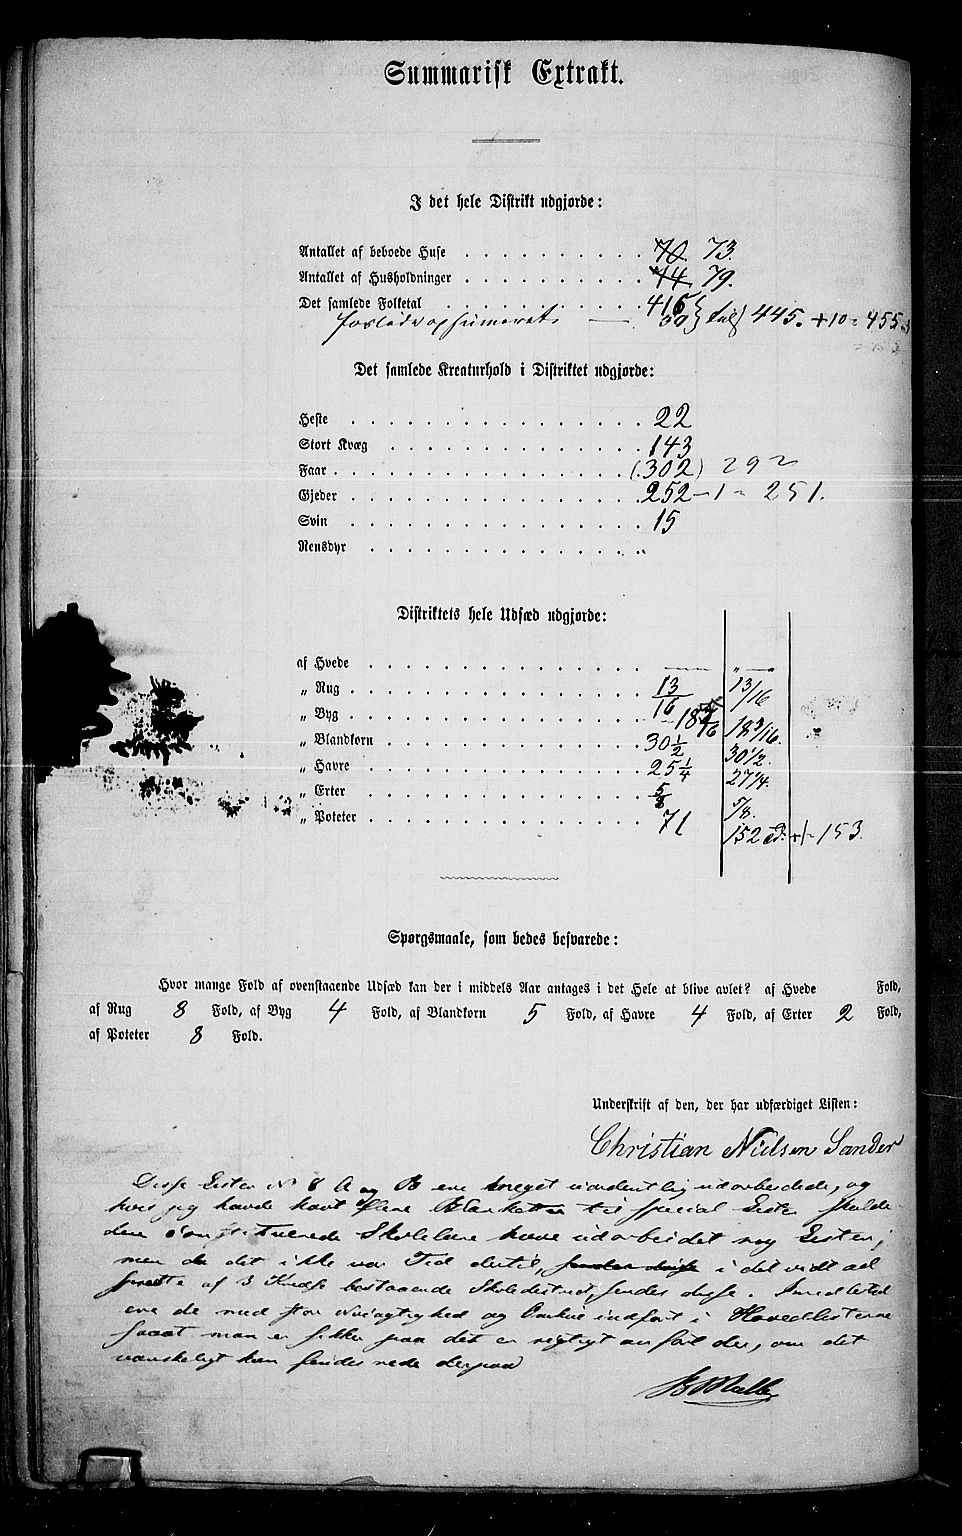 Summarisk Extrakt.
I det hele Distrikt udgjorde:
Antallet af beboede Huse . . . . . . . . . . 70 73.
Antallet af Husholdninger . . . . . . . . . . 44 79.
Det samlede Folketal . . . . . . . . . . 415
30 } 445. + 10 = 455.
Det samlede Kreaturhold i Distriktet udgjorde:
Heste . . . . . . . . . . 22
Stort Kvæg . . . . . . . . . . 143
Faar . . . . . . . . . . (302) 292
Gjeder . . . . . . . . . . 252 – 1 = 251.
Svin . . . . . . . . . . 15
Rensdyr . . . . . . . . . . "
Distriktets hele Udsæd udgjorde:
af Hvede . . . . . . . . . . — " —
„ Rug . . . . . . . . . . 13/16 13/16
„ Byg . . . . . . . . . . 18 3/16 18 3/16.
„ Blandkorn . . . . . . . . . . 30 1/2 30 1/2.
„ Havre . . . . . . . . . . 25 1/4 27 1/4.
„ Erter . . . . . . . . . . 5/8 5/8.
„ Poteter . . . . . . . . . . 71 152 + 1 = 153.
Spørgsmaale, som bedes besvarede:
Hvor mange Fold af ovenstaaende Udsæd kan der i middels Aar antages i det Hele at blive avlet? af Hvede Fold,
af Rug 8 Fold, af Byg 4 Fold, af Blandkorn 5 Fold, af Havre 4 Fold, af Erter 2 Fold,
af Poteter 8 Fold.
Underskrift af den, der har udfærdiget Listen:
Christian Nielsen Sander
Disse Lister No 8 A og B ere meget uordentlig udarbeidede, og
hvis jeg havde havt flere Blanketter til special Lister skulde
den constituerede Skolelærer have udarbeidet nye Lister;
men da det ikke var Tid dertil, i det vidt ad
af 3 Kredse bestaaende Skoledistrict, sendes disse. Imidlertid
ere de med stor Nøiagtighed og Omhu indført i Hovedlisterne
saaat man er sikker paa det er rigtigt anført der, om det
vanskeligt kan findes rede derpaa